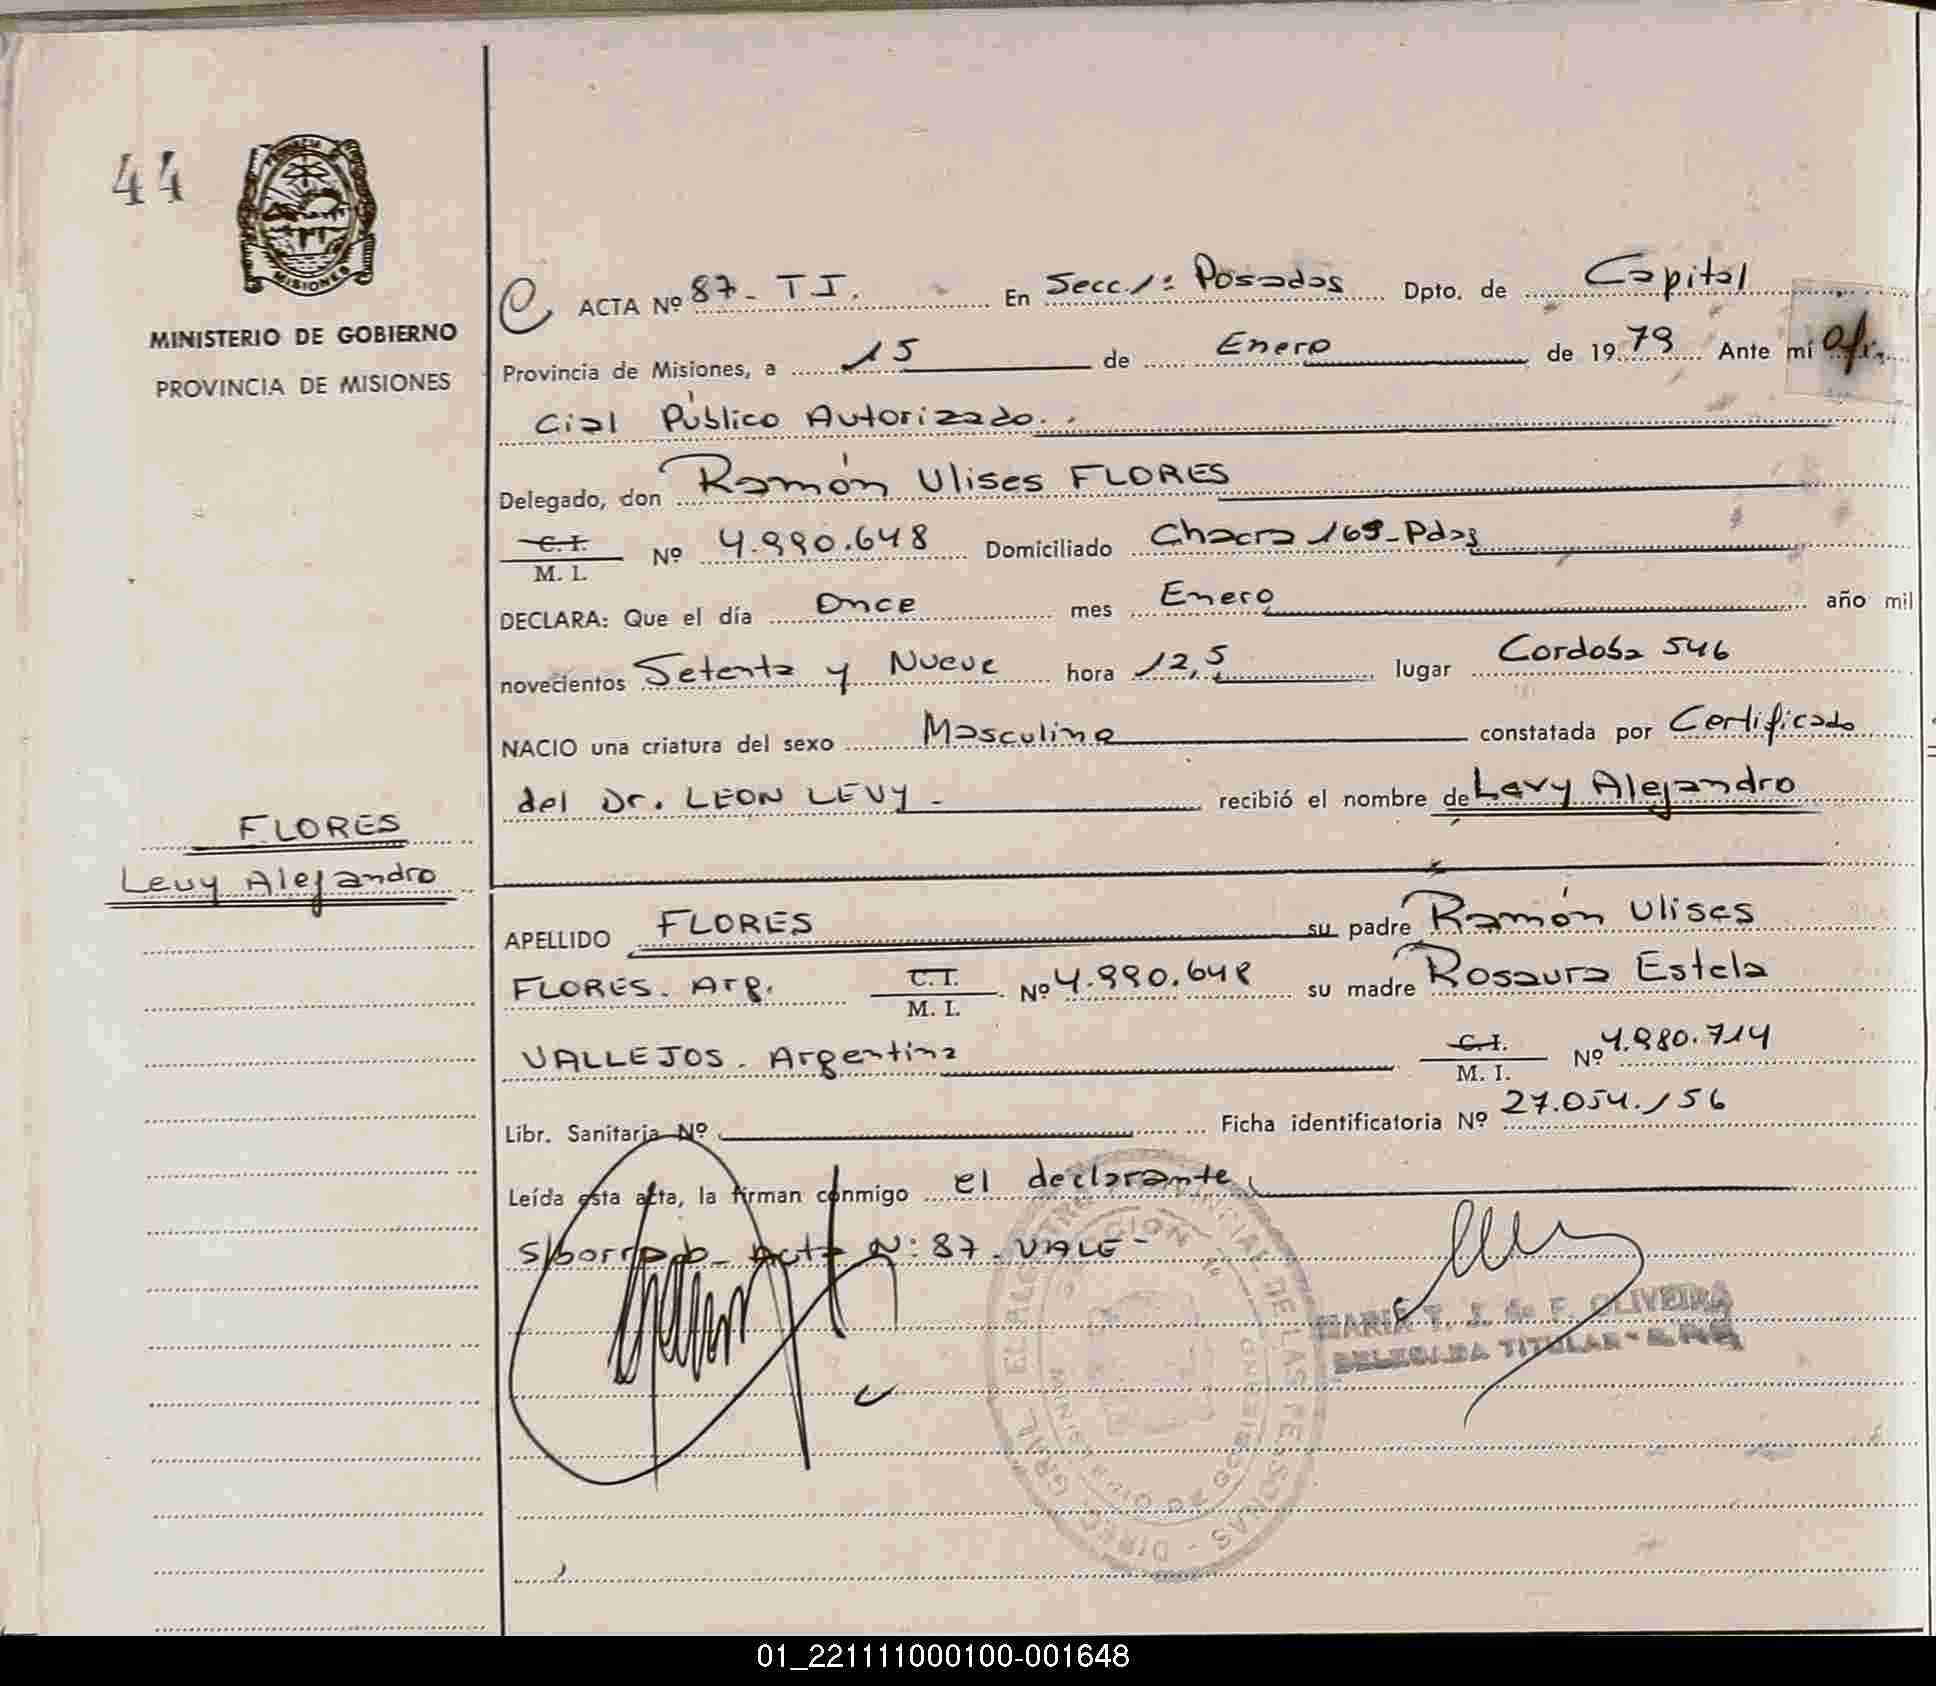 44
PROVINCIA DE
MISIONES
MINISTERIO DE GOBIERNO
PROVINCIA DE MISIONES
ACTA Nº 87- T I. En Secc 1ª Posadas Dpto. de Capital
Provincia de Misiones, a 15 de Enero de 1979 Ante mí Ofi-
cial Público Autorizado.
Delegado, don Ramón Ulises FLORES
C. I. M. I. Nº 4.990.648 Domiciliado Chacra 169-Pdas
DECLARA: Que el día Once mes Enero año mil
novecientos Setenta y Nueve hora 12,5 lugar Cordoba 546
NACIO una criatura del sexo Masculino constatada por Certificado
del Dr. LEON LEVY - recibió el nombre de Levy Alejandro
FLORES
Levy Alejandro
APELLIDO FLORES su padre Ramón Ulises
FLORES. Arg. C. I. M. I. Nº 4.990.648 su madre Rosaura Estela
VALLEJOS. Argentina C. I. M. I. Nº 4.980.714
Libr. Sanitaria Nº Ficha identificatoria Nº 27.054.156
Leída esta acta, la firman conmigo el declarante
S/borrado- Acta Nº: 87. VALE-
MARIA T. J. de F. OLIVEIRA
DELEGADA TITULAR
01_221111000100-001648